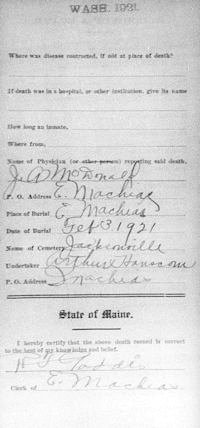 WASH. 1921.
Where was disease contracted, if not at place of death?
If death was in a hospital, or other institution, give its name
How long an inmate,
Where from,
Name of Physician (or other person) reporting said death,
J. A. McDonald
P. O. Address E. Machias
Place of Burial E Machias
Date of Burial Feb 3, 1921
Name of Cemetery Jacksonville
Undertaker Arthur Hanscom
P. O. Address Machias
State of Maine.
I hereby certify that the above death record is correct
to the best of my knowledge and belief.
Clerk of E. Machias